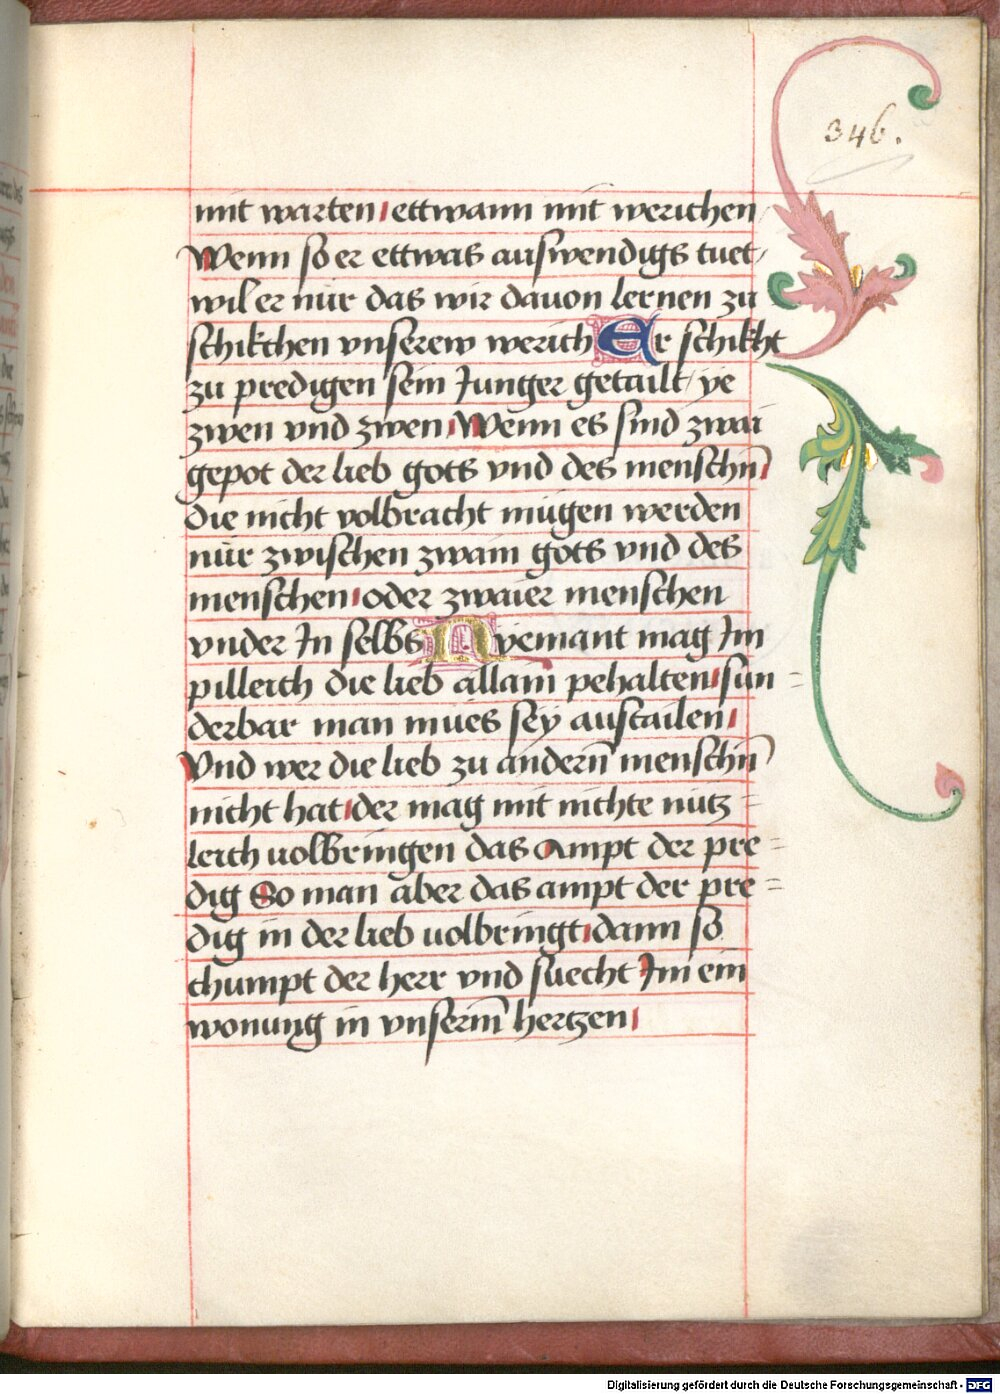 346.
mit warten / ettwann mit werichen
Wenn so er ettwas auswendigs tuet /
wil er nur das wir dauon lernen zu
schikchen vnserew werich Er schikht
zu predigen sein Junger getailt / ye
zwen vnd zwen / Wenn es sind zwai
gepot der lieb gots vnd des menschn̄ /
die nicht volbracht mügen werden
nůr zwischen zwain gots vnd des
menschen / oder zwaier menschen
vnder In selbs Nyemant mag Im
pillerch die lieb allain pehalten / sun=
derbar man mues sey austailen /
Vnd wer die lieb zu andern̄ menschn̄
nicht hat / der mag mit nichte nutz=
lerch uolbringen das Ampt der pre=
dig So man aber das ampt der pre=
dig in der lieb uolbringt / dann so
chumpt der herr vnd suecht Im ein
wonung in vnserm̄ hertzen /
Digitalisierung gefördert durch die Deutsche Forschungsgemeinschaft - DFG